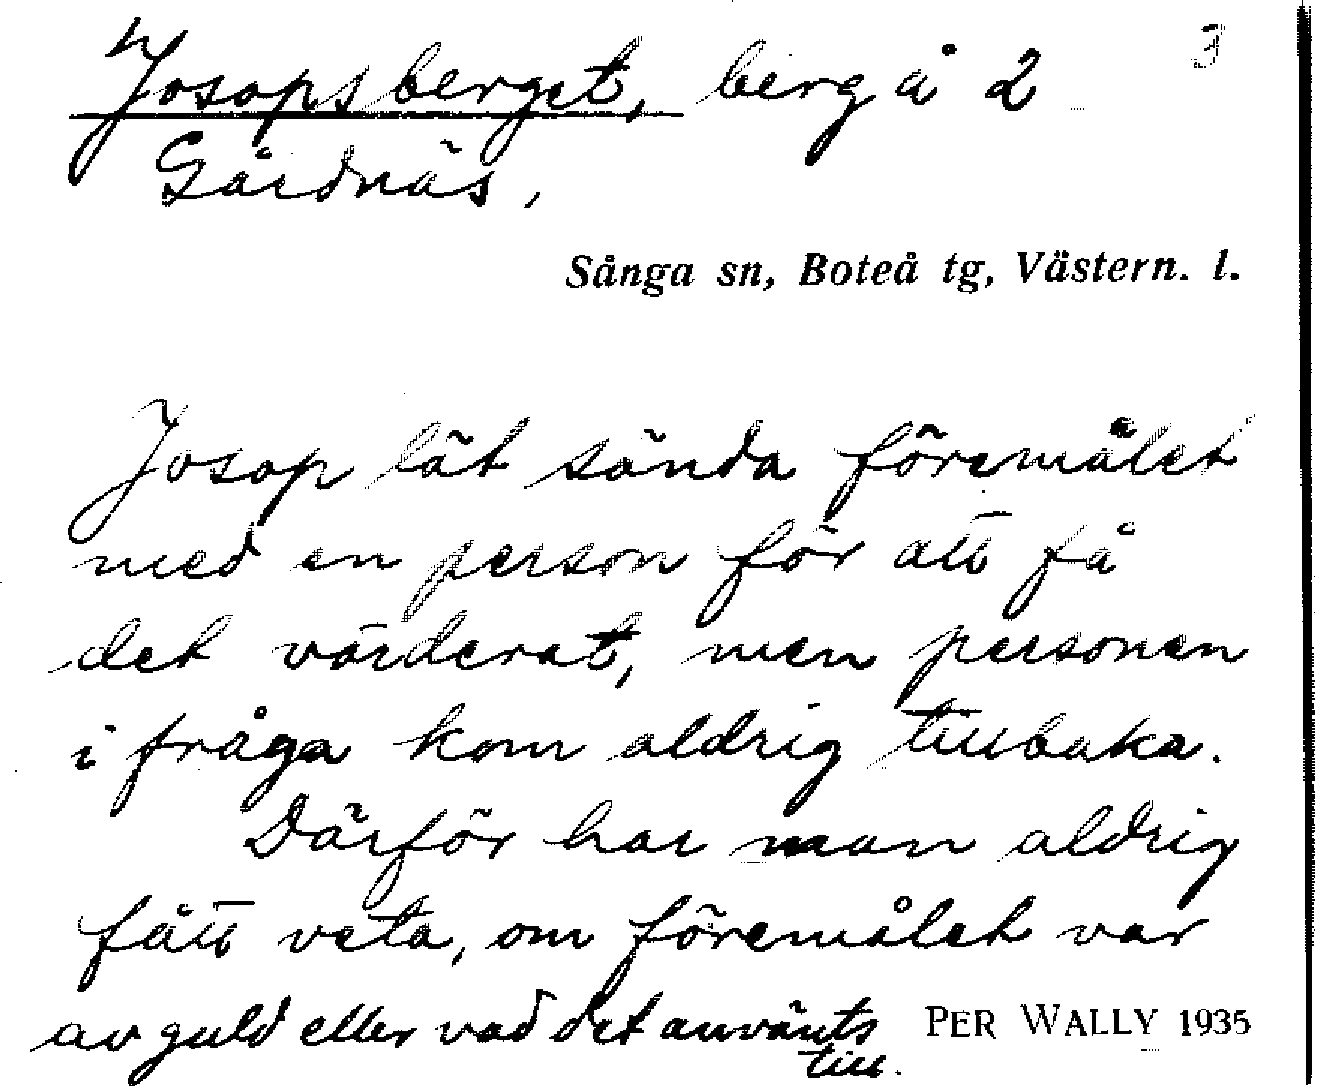 Josopsberget, berg å 2 3
Gårdnäs,
Sånga sn, Boteå tg, Västern. l.
Josop lät sända föremålet
med en person för att få
det värderat, men personen
i fråga kom aldrig tillbaka.
Därför har man aldrig
fått veta, om föremålet var
av guld eller vad det använts
till.
PER WALLY 1935